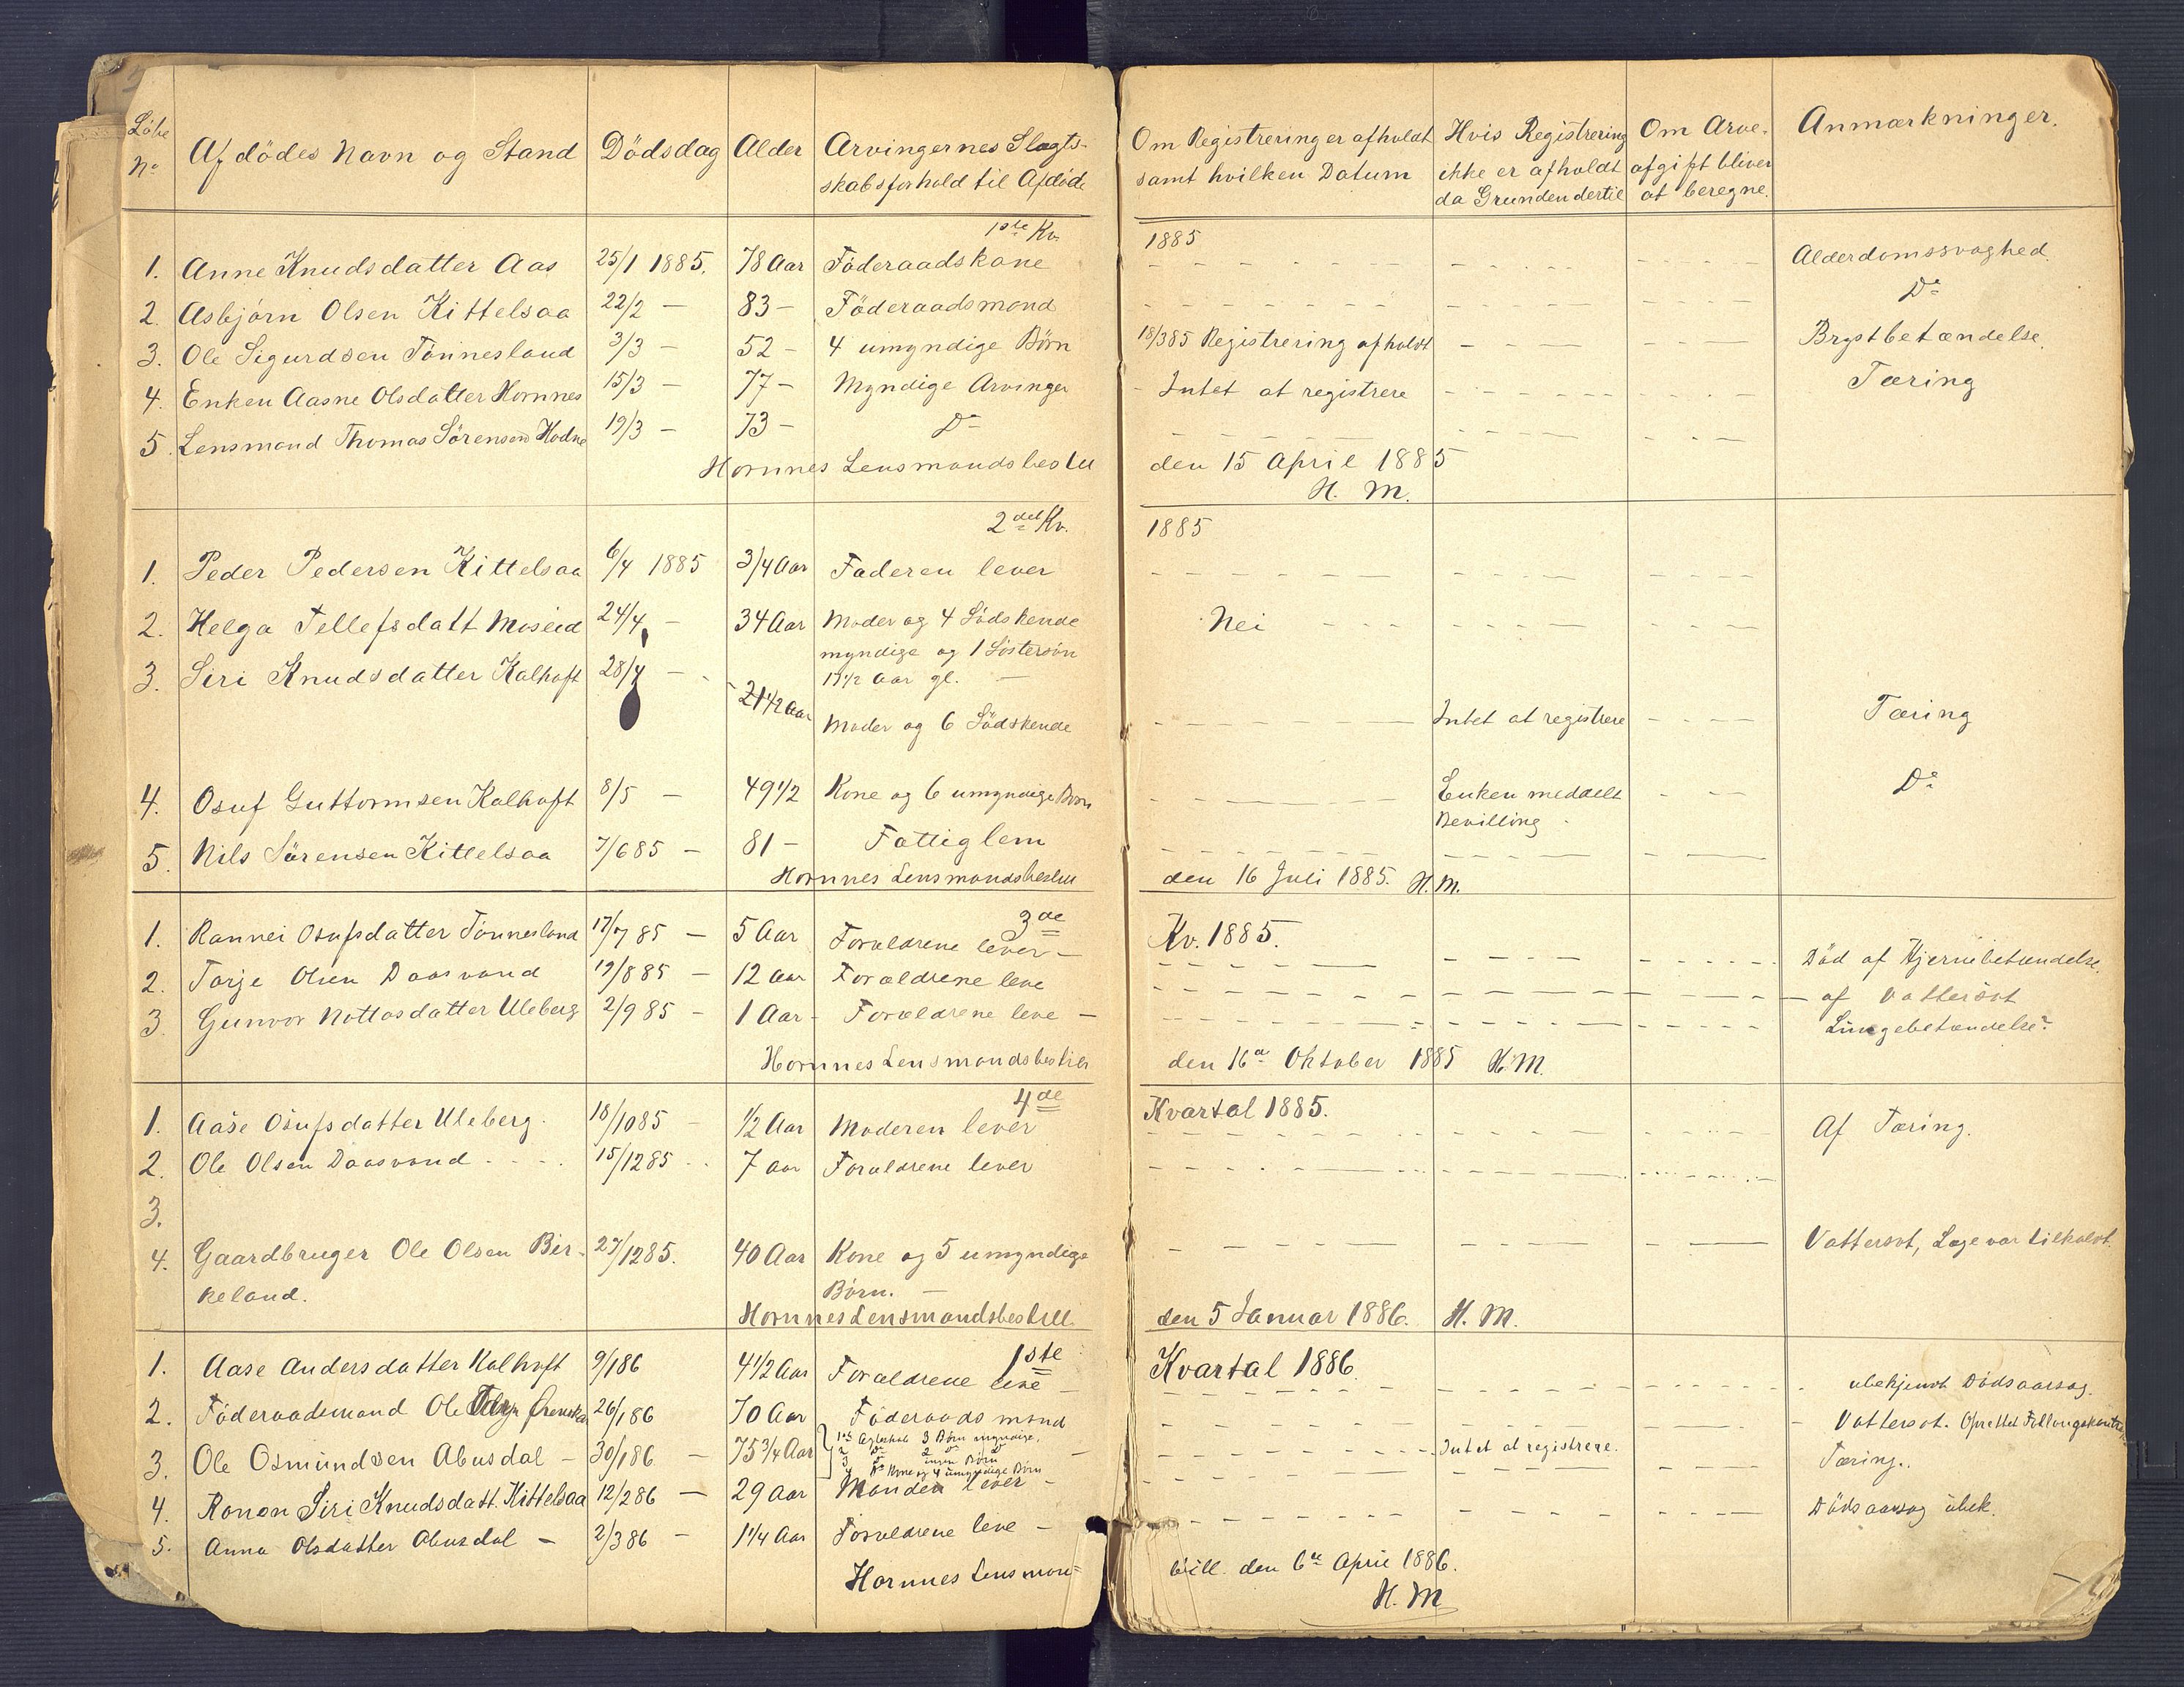 Löbe No Afdödes Navn og Stand Dödsdag Alder Arvingernes Slægts-skabsforhold til Afdöde Om Registrering er afholdt samt hvilken Datum Hvis Registrering ikke er afholdt da Grunden dertil Om Arve-afgift bliver at beregne. Anmærkninger.
1ste Kv. 1885
1. Anne Knudsdatter Aas 25/1 1885. 78 Aar Föderaadskone Alderdomssvaghed.
2. Asbjörn Olsen Kittelsaa 22/2 — 83 — Föderaadsmand Do
3. Ole Sigurdsen Tönnesland 3/3 — 52 — 4 umyndige Börn 18/3 85 Registrering afholdt Brystbetændelse.
4. Enken Aasne Olsdatter Hornnes 15/3 — 77 — Myndige Arvinger Intet at registrere Tæring
5. Lensmand Thomas Sörensen Hodne 19/3 — 73 — Do
Hornnes Lensmandsbestill den 15 April 1885
H. M.
2det Kv. 1885
1. Peder Pedersen Kittelsaa 6/4 1885 3/4 Aar Faderen lever
2. Helga Tellefsdatt Moseid 24/4 — 34 Aar Moder og 4 Södskende Nei
myndige og 1 Söstersön
3. Siri Knudsdatter Kalhoft 28/4 — 21 1/2 Aar 17 1/2 Aar gl. —
Moder og 6 Södskende Intet at registrere Tæring
4. Osuf Guttormsen Kalhoft 8/5 — 49 1/2 Kone og 6 umyndige Börn Enken meddelt Do
Bevilling
5. Nils Sörensen Kittelsaa 7/6 85 — 81 — Fattiglem
Hornnes Lensmandsbestill den 16 Juli 1885. H. M.
3de Kv. 1885.
1. Rannei Osufsdatter Tönnesland 17/7 85 — 5 Aar Forældrene lever — Död af Hjernebetændelse.
2. Torje Olsen Daasvand 19/8 85 — 12 Aar Forældrene leve — af Vattersot
3. Gunvor Nottosdatter Uleberg 2/9 85 — 1 Aar — Forældrene leve — Lungebetændelse
Hornnes Lensmandsbestill den 16de Oktober 1885 H. M.
4de Kvartal 1885.
1. Aase Osufsdatter Uleberg. 18/10 85 1/2 Aar Moderen lever Af Tæring.
2. Ole Olsen Daasvand 15/12 85 7 Aar Forældrene lever
3.
4. Gaardbruger Ole Olsen Bir- 27/12 85. 40 Aar Kone og 5 umyndige Vattersot, Læge var tilkaldt.
keland. Börn. —
Hornnes Lensmandsbestill. den 5 Januar 1886. H. M.
1ste Kvartal 1886.
1. Aase Andersdatter Kalhoft 9/1 86 4 1/2 Aar Forældrene leve ubekjendt Dödsaarsag.
2. Föderaadsmand Ole 26/1 86 70 Aar Föderaadsmand Vattersot. Oprettet
3. Ole Osmundsen Abusdal — 30/1 86 — 75 3/4 Aar 1ste Ægteskab 3 Börn myndige, Intet at registrere. Tæring.
2 Do 2 Do Do
3 Do ingen Börn
4 Do Kone og 4 umyndige Börn
4. Konen Siri Knudsdatt. Kittelsaa 12/2 86 — 29 Aar Manden lever — Dödsaarsag ubek.
5. Anna Olsdatter Abusdal — 2/3 86 — 1 1/4 Aar Forældrene leve —
Hornnes Lensman= bestill. den 6te April 1886.
H. M